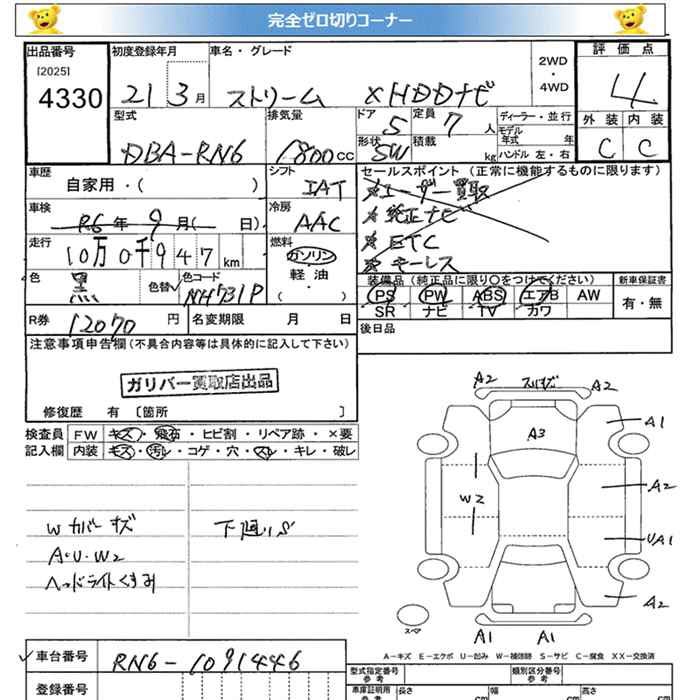 完全ゼロ切りコーナー
出品番号
[2025]
4330
初度登録年月
21 3月
車名・グレード
ストリーム X HDDナビ
2WD
・
4WD
評価点
4
外装 内装
C C
型式
DBA-RN6
排気量
1800cc
ドア
5
定員
7人
形状
SW
積載
kg
ディーラー・並行
モデル年式 年
ハンドル 左・右
車歴
自家用・( )
シフト
IAT
セールスポイント(正常に機能するものに限ります)
ユーザー買取
純正ナビ
ETC
キーレス
車検
R6年9月( 日)
冷房
AAC
走行
10万0千947km
燃料
ガソリン
軽油
・
( )
色
黒
色替
色コード
NH731P
装備品(純正品に限り○をつけてください)
PS PW ABS エアB AW
SR ナビ TV カワ
新車保証書
有・無
R券
12070円
名変期限 月 日
後日品
注意事項申告欄(不具合内容等は具体的に記入して下さい)
ガリバー買取店出品
修復歴 有 〔箇所 〕
検査員
記入欄
FW キズ・飛石・ヒビ割・リペア跡・×要
内装 キズ・汚レ・コゲ・穴・スレ・キレ・破レ
Wカバーキズ
A・U・W2
ヘッドライトくすみ
下廻りS
A2 A2
A3
A1
W2
A2
UA1
A2
A1 A1
スペア
A-キズ E-エクボ U-凹み W-補修跡 S-サビ C-腐食 XX-交換済
車台番号
RN6-1091446
登録番号
型式指定番号
参考
類別区分番号
参考
車庫証明用
参考
長さ cm
幅 cm
高さ cm